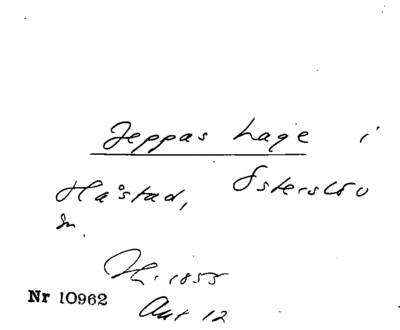 Jeppas hage i
Håstad, Österslöv
sn.
H. 1855
Nr 10962
Akt 12